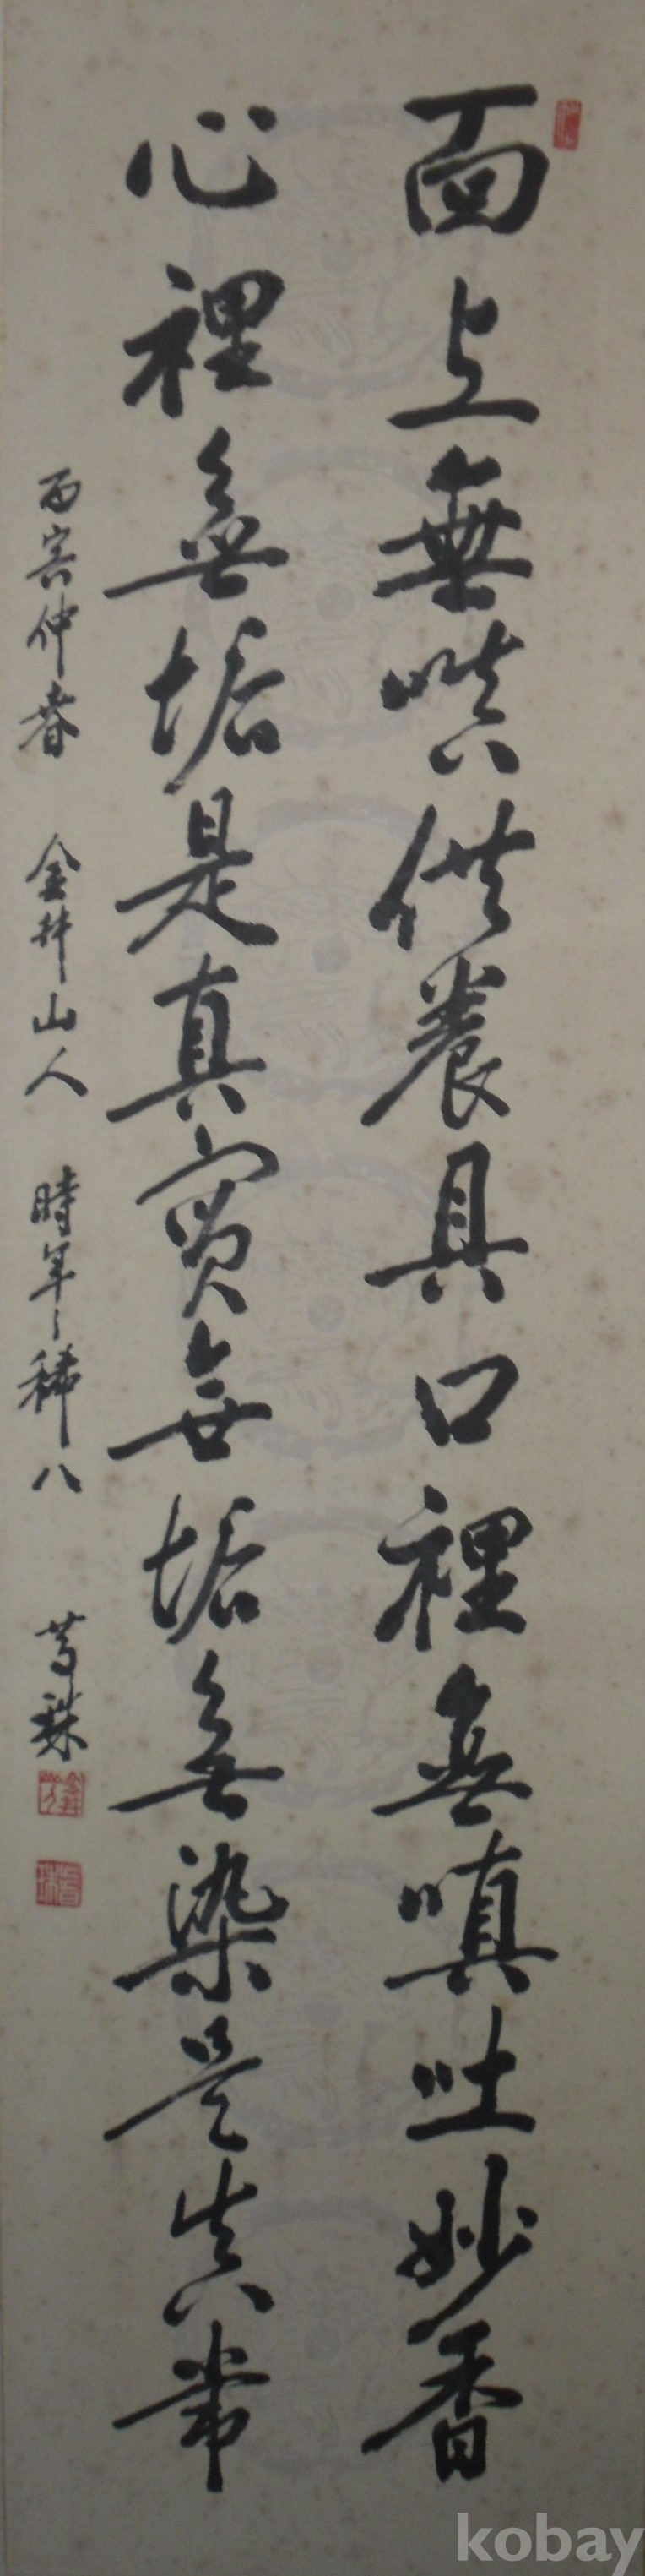 面上無嗔供養具口裡無嗔吐妙香
心裡無垢是真實無垢無染是真常
丙寅仲春 金井山人 時年稀八
kobay